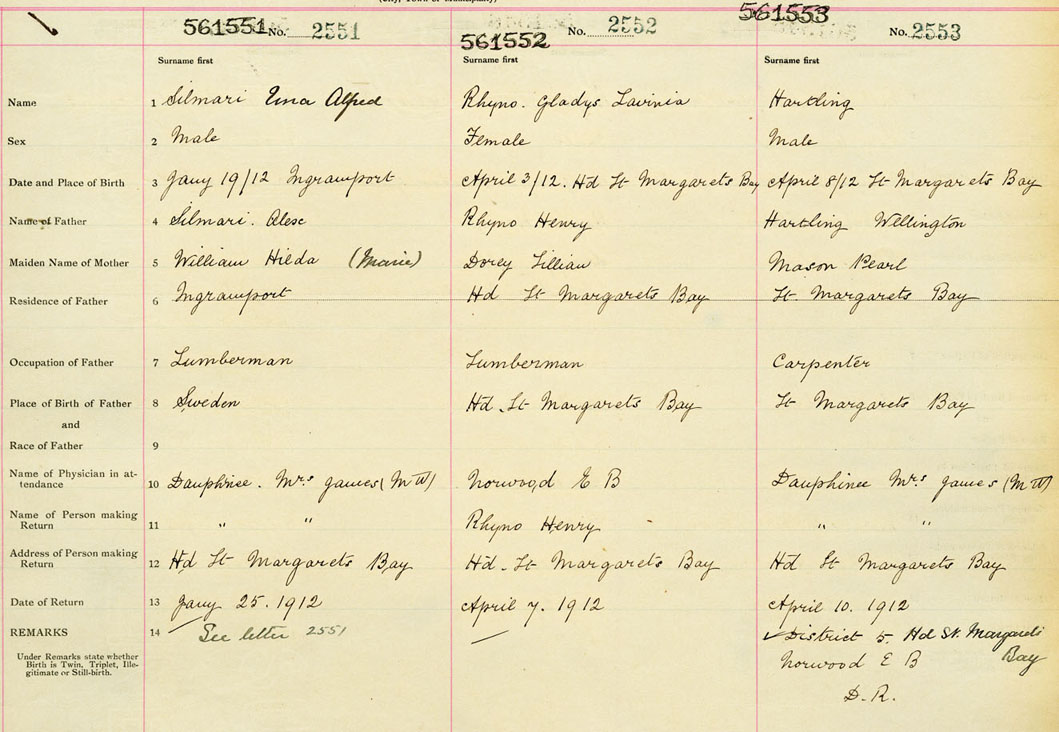 (City, Town or Municipality)
561551 No. 2551
561552 No. 2552
561553 No. 2553
Surname first Surname first Surname first
Name 1 Silmari Alfred Rhyno. Gladys Lavinia Hartling
Sex 2 Male Female Male
Date and Place of Birth 3 Jany 19/12 Ingramport April 3/12. Hd St Margarets Bay April 8/12 St Margarets Bay
Name of Father 4 Silmari. Alex Rhyno Henry Hartling Wellington
Maiden Name of Mother 5 William Hilda (Marie) Dorey Lillian Mason Pearl
Residence of Father 6 Ingramport Hd St Margarets Bay St Margarets Bay
Occupation of Father 7 Lumberman Lumberman Carpenter
Place of Birth of Father 8 Sweden Hd. St Margarets Bay St Margarets Bay
and
Race of Father 9
Name of Physician in at-
tendance 10 Dauphinee. Mrs James (M W) Norwood E B Dauphinee Mrs James (M W)
Name of Person making
Return 11 " " Rhyno Henry " "
Address of Person making
Return 12 Hd St Margarets Bay Hd. St Margarets Bay Hd St Margarets Bay
Date of Return 13 Jany 25. 1912 April 7. 1912 April 10. 1912
REMARKS 14 See letter 2551 — ✓ District 5. Hd St. Margarets
Under Remarks state whether
Birth is Twin, Triplet, Ille-
gitimate or Still-birth.
Bay
Norwood E B
D.R.